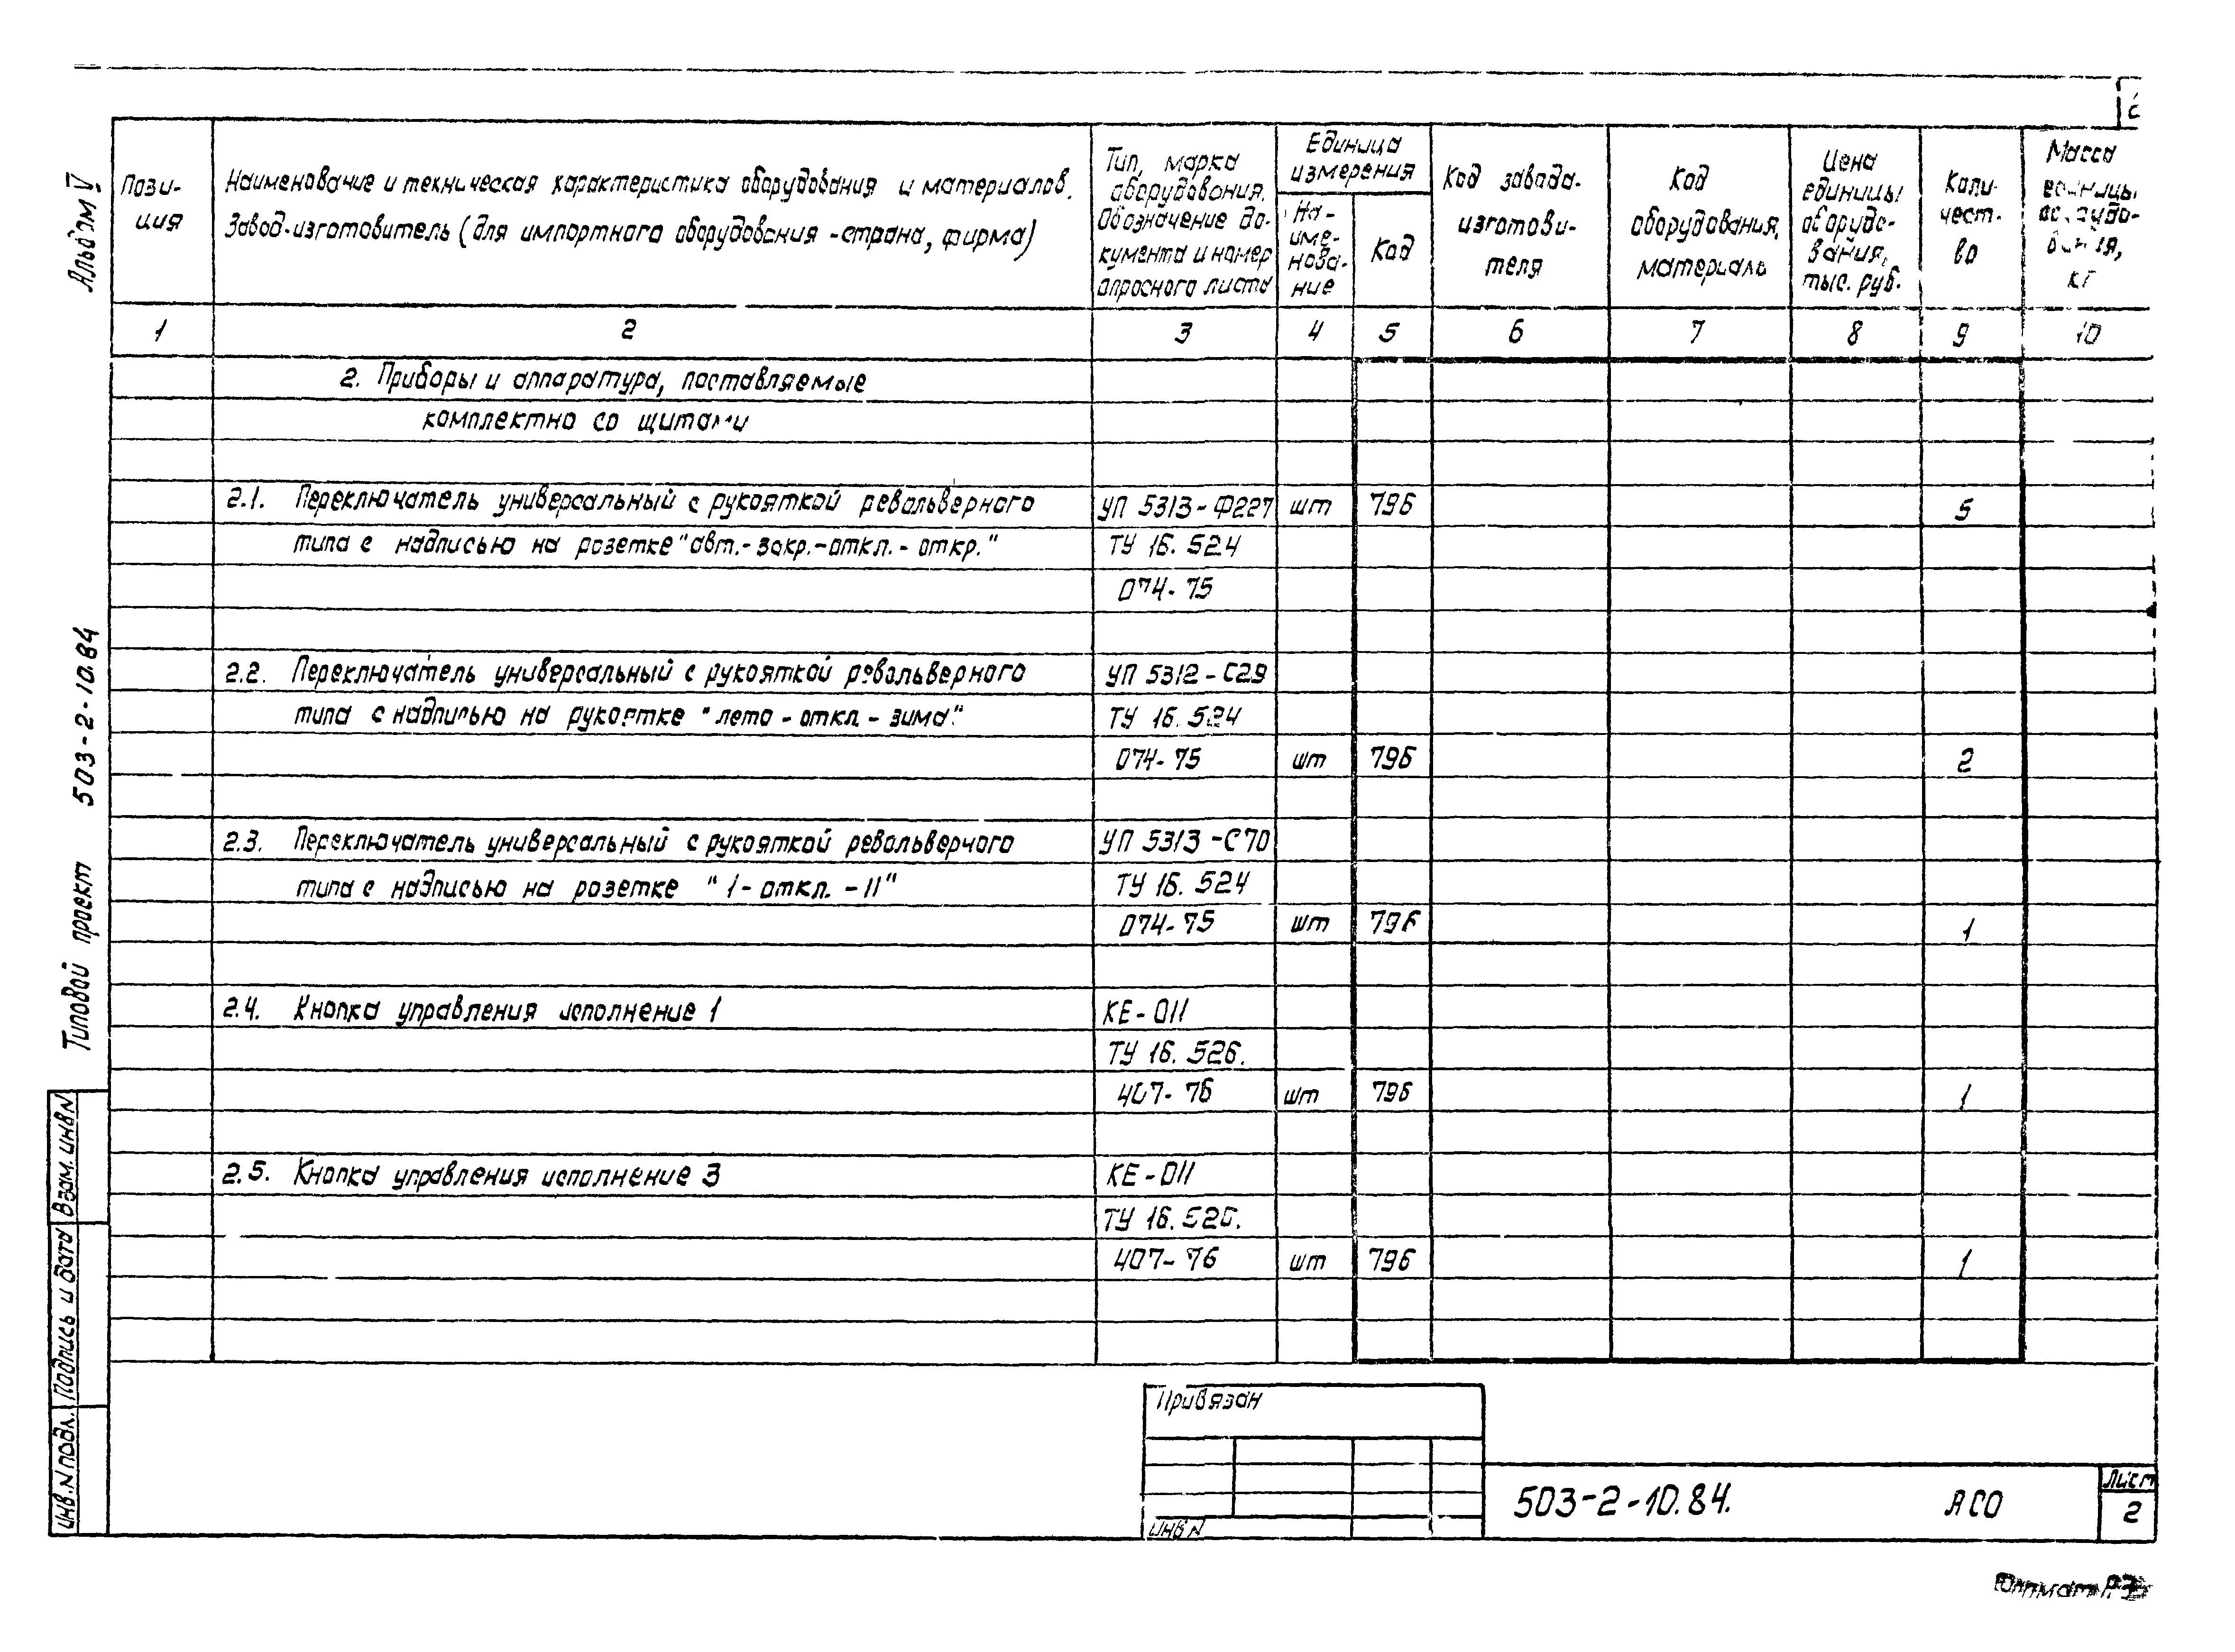 Альбом V
Типовой проект 503-2-10.84
Взам. инв N
Подпись и дата
Инв. N подл.
Пози-
ция
Наименование и техническая характеристика оборудования и материалов.
Завод-изготовитель (для импортного оборудования - страна, фирма)
Тип, марка
оборудования.
Обозначение до-
кумента и номер
опросного листа
Единица
измерения
На-
име-
нова-
ние
Код
Код завода-
изготови-
теля
Код
оборудования,
материала
Цена
единицы
оборудо-
вания,
тыс. руб.
Коли-
чест-
во
Масса
единицы
оборудо-
вания,
кг
1 2 3 4 5 6 7 8 9 10
2. Приборы и аппаратура, поставляемые
комплектно со щитами
2.1. Переключатель универсальный с рукояткой револьверного УП 5313-Ф227 шт 796 5
типа с надписью на розетке "авт.-закр.-откл.-откр." ТУ 16. 524
074-75
2.2. Переключатель универсальный с рукояткой револьверного УП 5312-С29
типа с надписью на рукоятке "лето - откл. - зима". ТУ 16. 524
074-75 шт 796 2
2.3. Переключатель универсальный с рукояткой револьверного УП 5313-С70
типа с надписью на розетке "I - откл. - II" ТУ 16. 524
074-75 шт 796 1
2.4. Кнопка управления исполнение 1 КЕ-011
ТУ 16. 526.
407-76 шт 796 1
2.5. Кнопка управления исполнение 3 КЕ-011
ТУ 16. 526.
407-76 шт 796 1
Привязан
Инв N
503-2-10.84. АСО
Лист
2
Формат А3